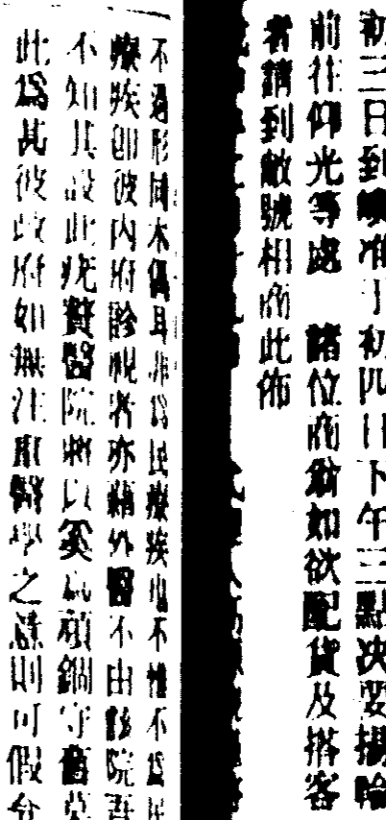 初三日到 准于初四日下午三點决要揚輪
前往仰光等處 諸位商翁如欲配貨及搭客
者請到敝號相商此佈
不過形同木偶耳非爲民療疾也不惟不爲民
療疾卽彼內府診視者亦藉外醫不由該院吾
不知其設此 醫院將以 頑錮守舊
此爲甚彼政府如無注重醫學之意則可假